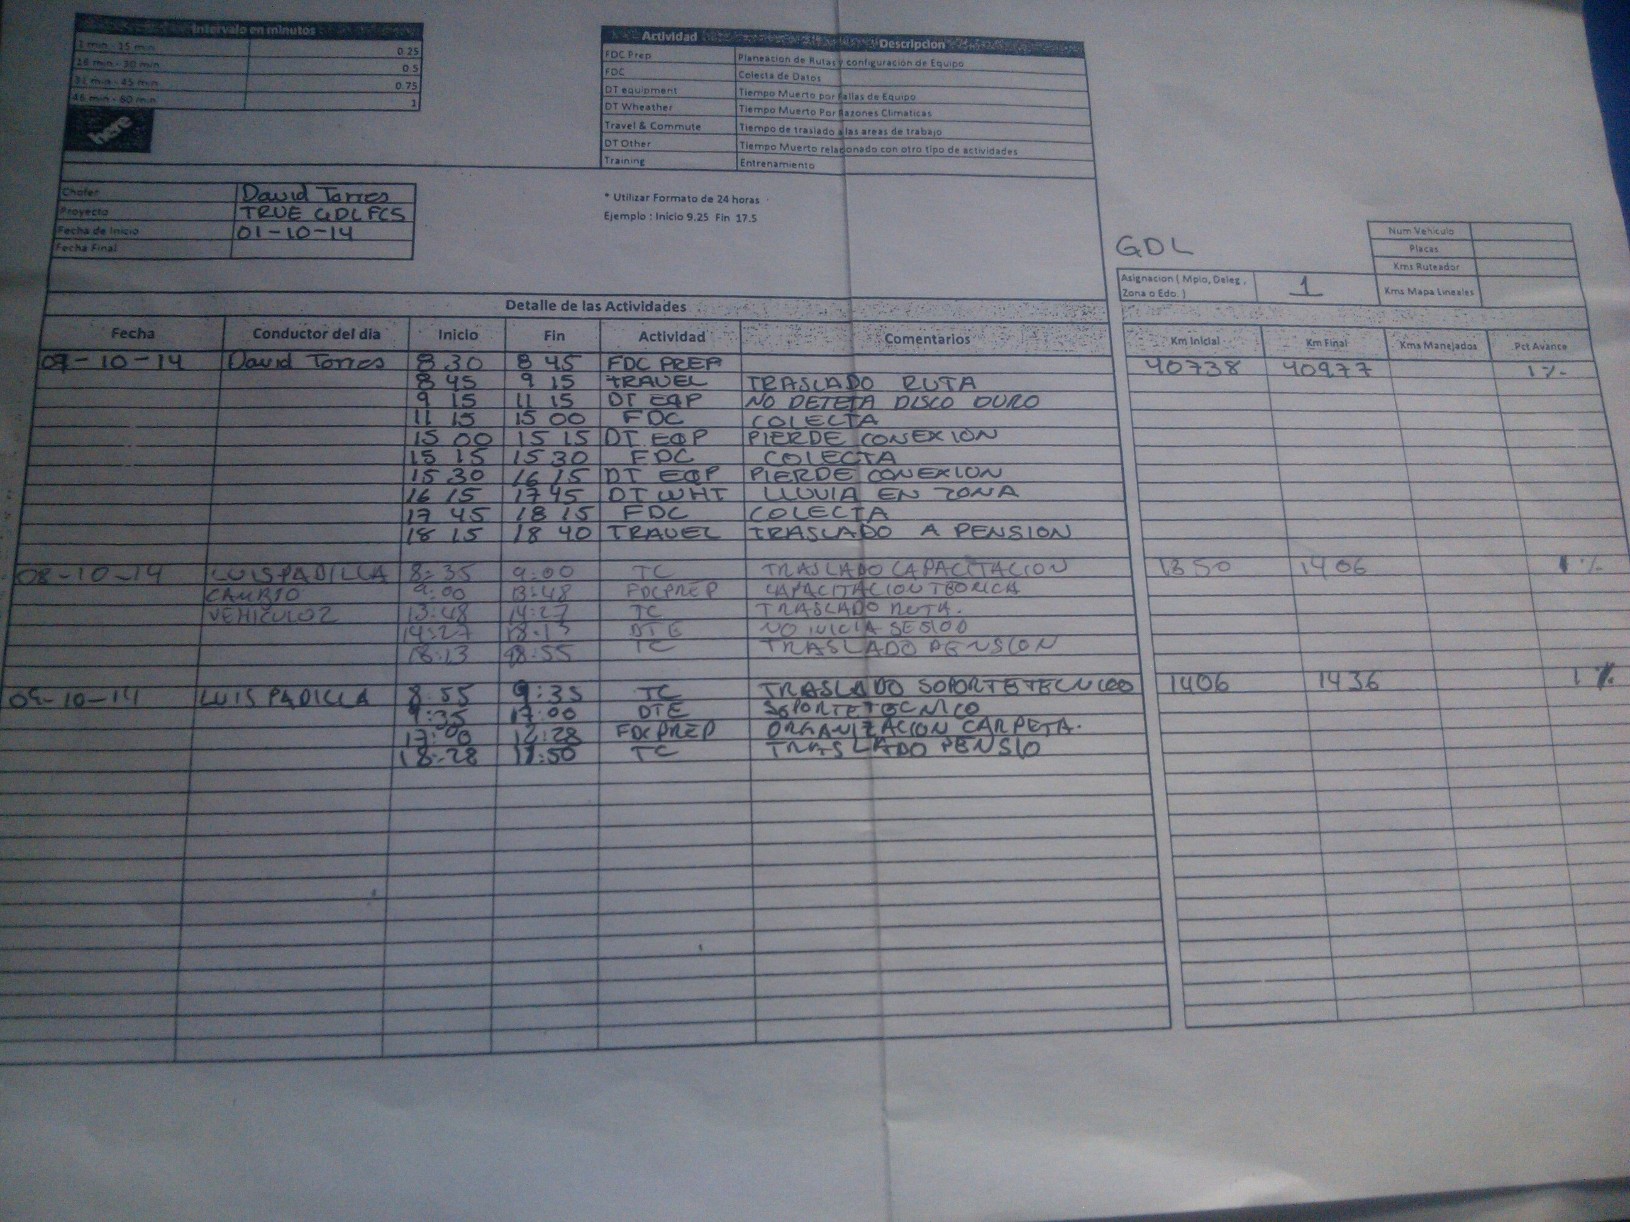 Intervalo en minutos
1 min - 15 min 0.25
16 min - 30 min 0.5
31 min - 45 min 0.75
46 min - 60 min 1
here
Actividad Descripcion
FDC Prep Planeacion de Rutas y configuración de Equipo
FDC Colecta de Datos
DT equipment Tiempo Muerto por Fallas de Equipo
DT Wheather Tiempo Muerto Por Razones Climaticas
Travel & Commute Tiempo de traslado a las areas de trabajo
DT Other Tiempo Muerto relacionado con otro tipo de actividades
Training Entrenamiento
Chofer David Torres
Proyecto TRUE GDL FCS
Fecha de Inicio 01-10-14
Fecha Final
* Utilizar Formato de 24 horas
Ejemplo : Inicio 9.25 Fin 17.5
GDL
Num Vehiculo
Placas
Kms Ruteador
Kms Mapa Lineales
Asignacion ( Mpio, Deleg,
Zona o Edo. ) 1
Detalle de las Actividades
Fecha Conductor del día Inicio Fin Actividad Comentarios Km Inicial Km Final Kms Manejados Pct Avance
07-10-14 David Torres 8 30 8 45 FDC PREP 40738 40977 1%
8 45 9 15 TRAVEL TRASLADO RUTA
9 15 11 15 DT EQP NO DETETA DISCO DURO
11 15 15 00 FDC COLECTA
15 00 15 15 DT EQP PIERDE CONEXION
15 15 15 30 FDC COLECTA
15 30 16 15 DT EQP PIERDE CONEXION
16 15 17 45 DT WHT LLUVIA EN ZONA
17 45 18 15 FDC COLECTA
18 15 18 40 TRAVEL TRASLADO A PENSION
08-10-14 LUIS PADILLA 8:35 9:00 TC TRASLADO CAPACITACION 1350 1406 1%
CAMBIO 9:00 13:48 FDCPREP CAPACITACION TEORICA
VEHICULO 2 13:48 14:27 TC TRASLADO RUTA.
14:27 18:13 DTE NO INICIA SESION
18:13 18:55 TC TRASLADO PENSION
09-10-14 LUIS PADILLA 8:55 9:35 TC TRASLADO SOPORTE TECNICO 1406 1436 1%
9:35 17:00 DTE SOPORTE TECNICO
17:00 FDCPREP ORGANIZACION CARPETA.
18:28 TC TRASLADO PENSIO